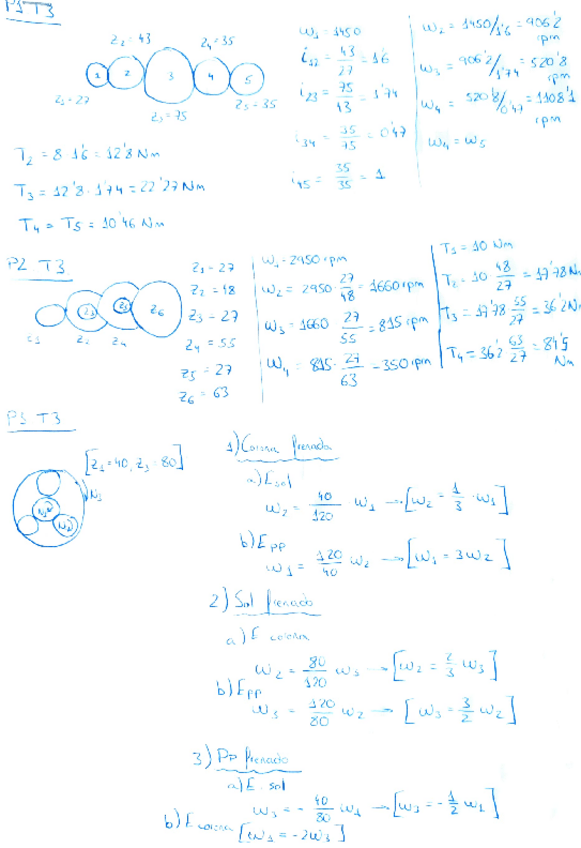 P1 T3
Z2 = 43
Z4 = 35
1 2 3 4 5
Z1 = 27
Z3 = 75
Z5 = 35
ω1 = 1450
i12 = 43/27 = 1'6
i23 = 75/43 = 1'74
i34 = 35/75 = 0'47
i45 = 35/35 = 1
ω2 = 1450/1'6 = 906'2 rpm
ω3 = 906'2/1'74 = 520'8 rpm
ω4 = 520'8/0'47 = 1108'1 rpm
ω4 = ω5
T2 = 8 1'6 = 12'8 Nm
T3 = 12'8 · 1'74 = 22'27 Nm
T4 = T5 = 10'46 Nm
P2 T3
Z2 Z4 Z6
Z1 = 27
Z2 = 48
Z3 = 27
Z4 = 55
Z5 = 27
Z6 = 63
ω1 = 2950 rpm
ω2 = 2950 · 27/48 = 1660 rpm
ω3 = 1660 27/55 = 815 rpm
ω4 = 815 · 27/63 = 350 rpm
T1 = 10 Nm
T2 = 10 48/27 = 17'78 Nm
T3 = 17'78 55/27 = 36'2 Nm
T4 = 36'2 63/27 = 84'5 Nm
P3 T3
[Z1 = 40, Z3 = 80]
N3
N1
N2
1) Corona frenada
a) E sol
ω2 = 40/120 ω1 → [ω2 = 1/3 · ω1]
b) E pp
ω1 = 120/40 ω2 → [ω1 = 3ω2]
2) Sol frenado
a) E corona
ω2 = 80/120 ω3 → [ω2 = 2/3 · ω3]
b) E pp
ω3 = 120/80 ω2 → [ω3 = 3/2 ω2]
3) Pp frenado
a) E. sol
ω3 = - 40/80 ω1 → [ω3 = - 1/2 ω1]
b) E corona [ω1 = -2ω3]